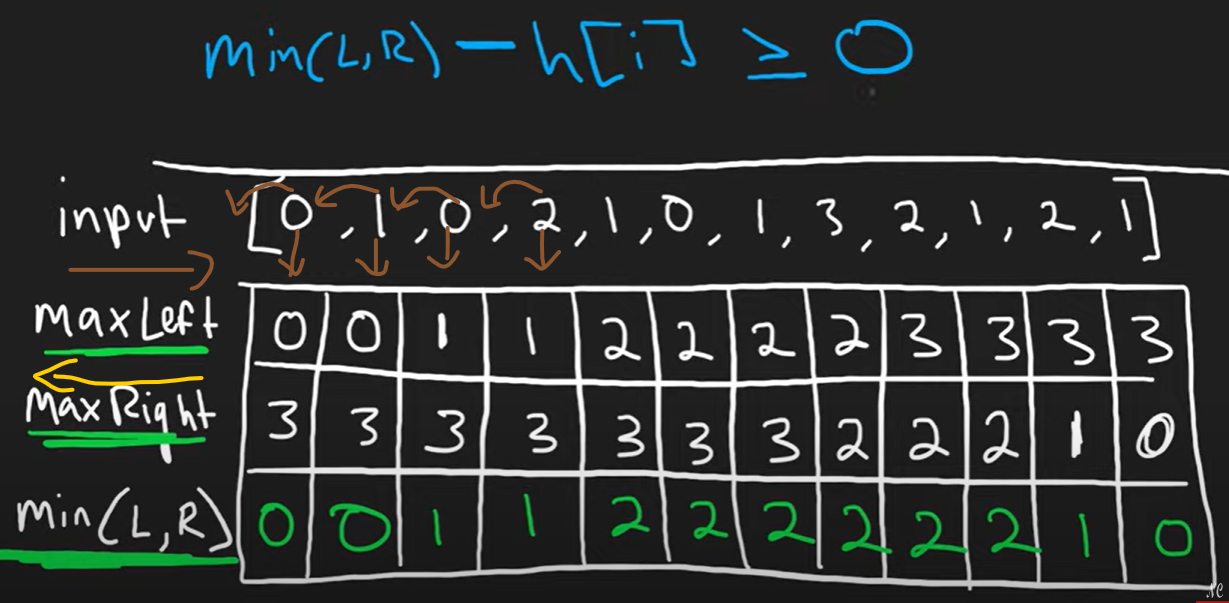 min(L,R) – h[i] ≥ 0
input [0,1,0,2,1,0,1,3,2,1,2,1]
maxLeft 0 0 1 1 2 2 2 2 3 3 3 3
MaxRight 3 3 3 3 3 3 3 2 2 2 1 0
Min(L,R) 0 0 1 1 2 2 2 2 2 2 1 0
NC